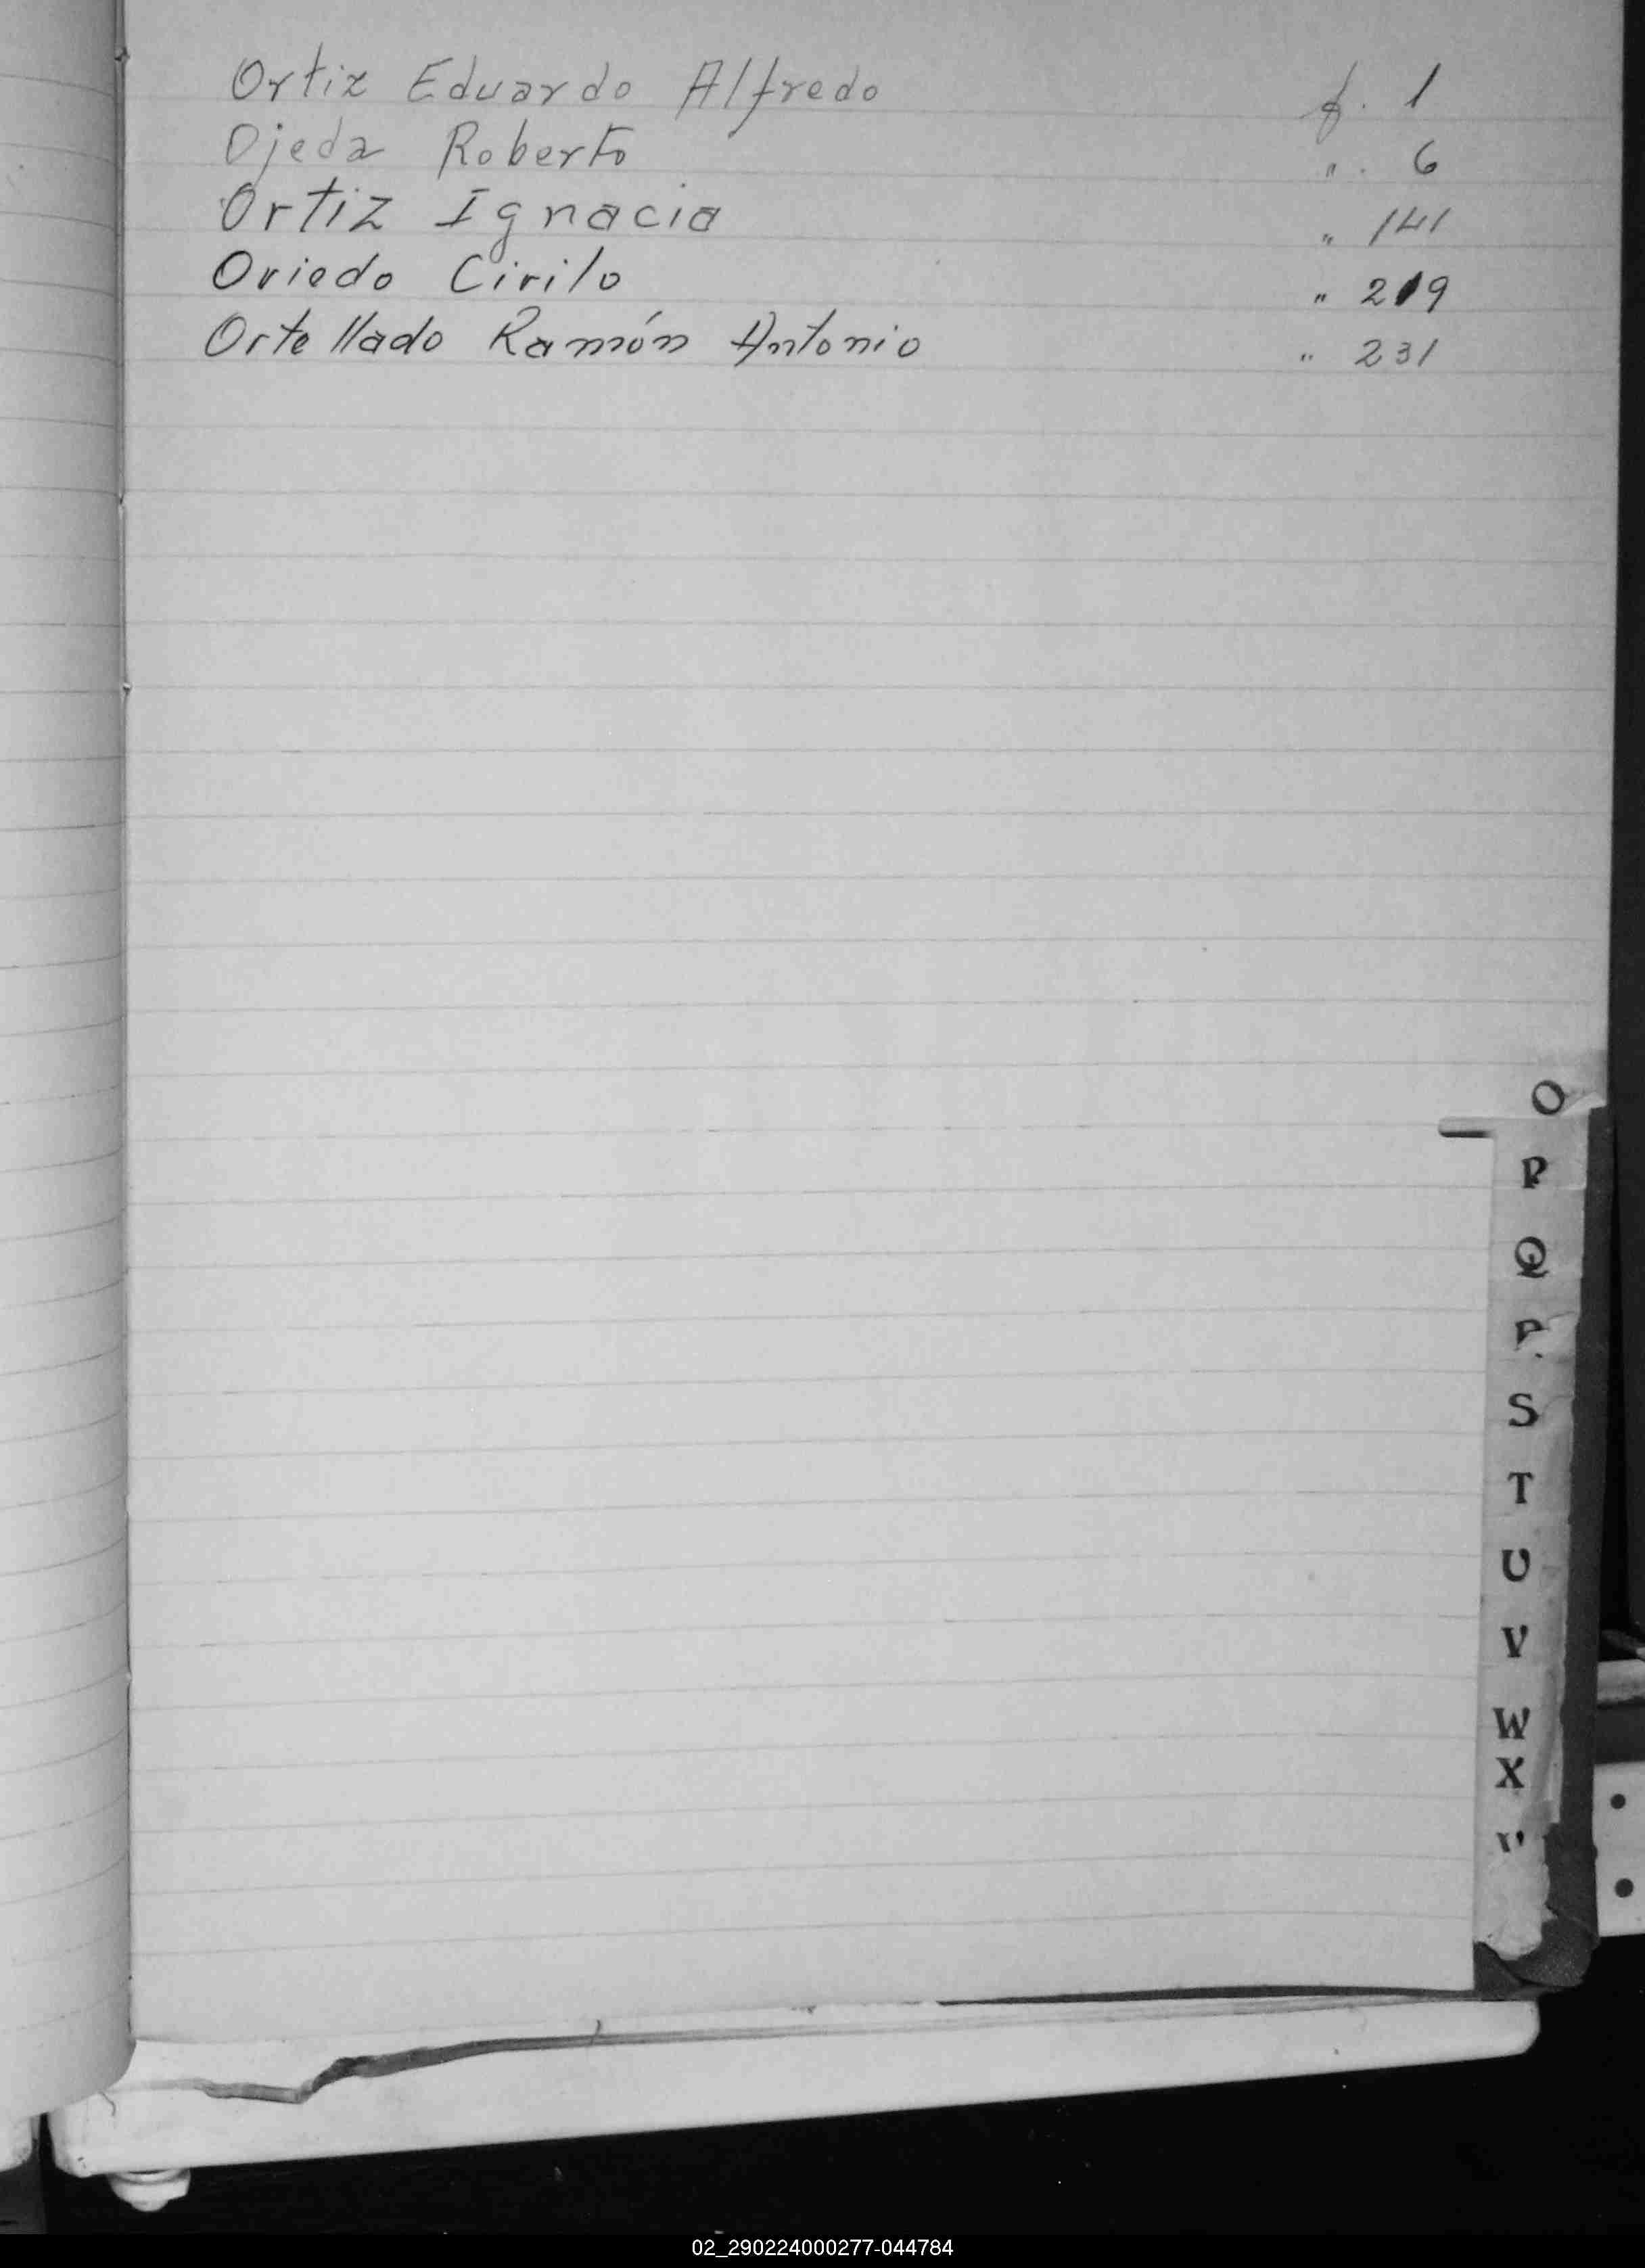 Ortiz Eduardo Alfredo f. 1
Ojeda Roberto " . 6
Ortiz Ignacia " 141
Oviedo Cirilo " 219
Ortellado Ramón Antonio " 231
O
P
Q
R
S
T
U
V
W
X
02_290224000277-044784